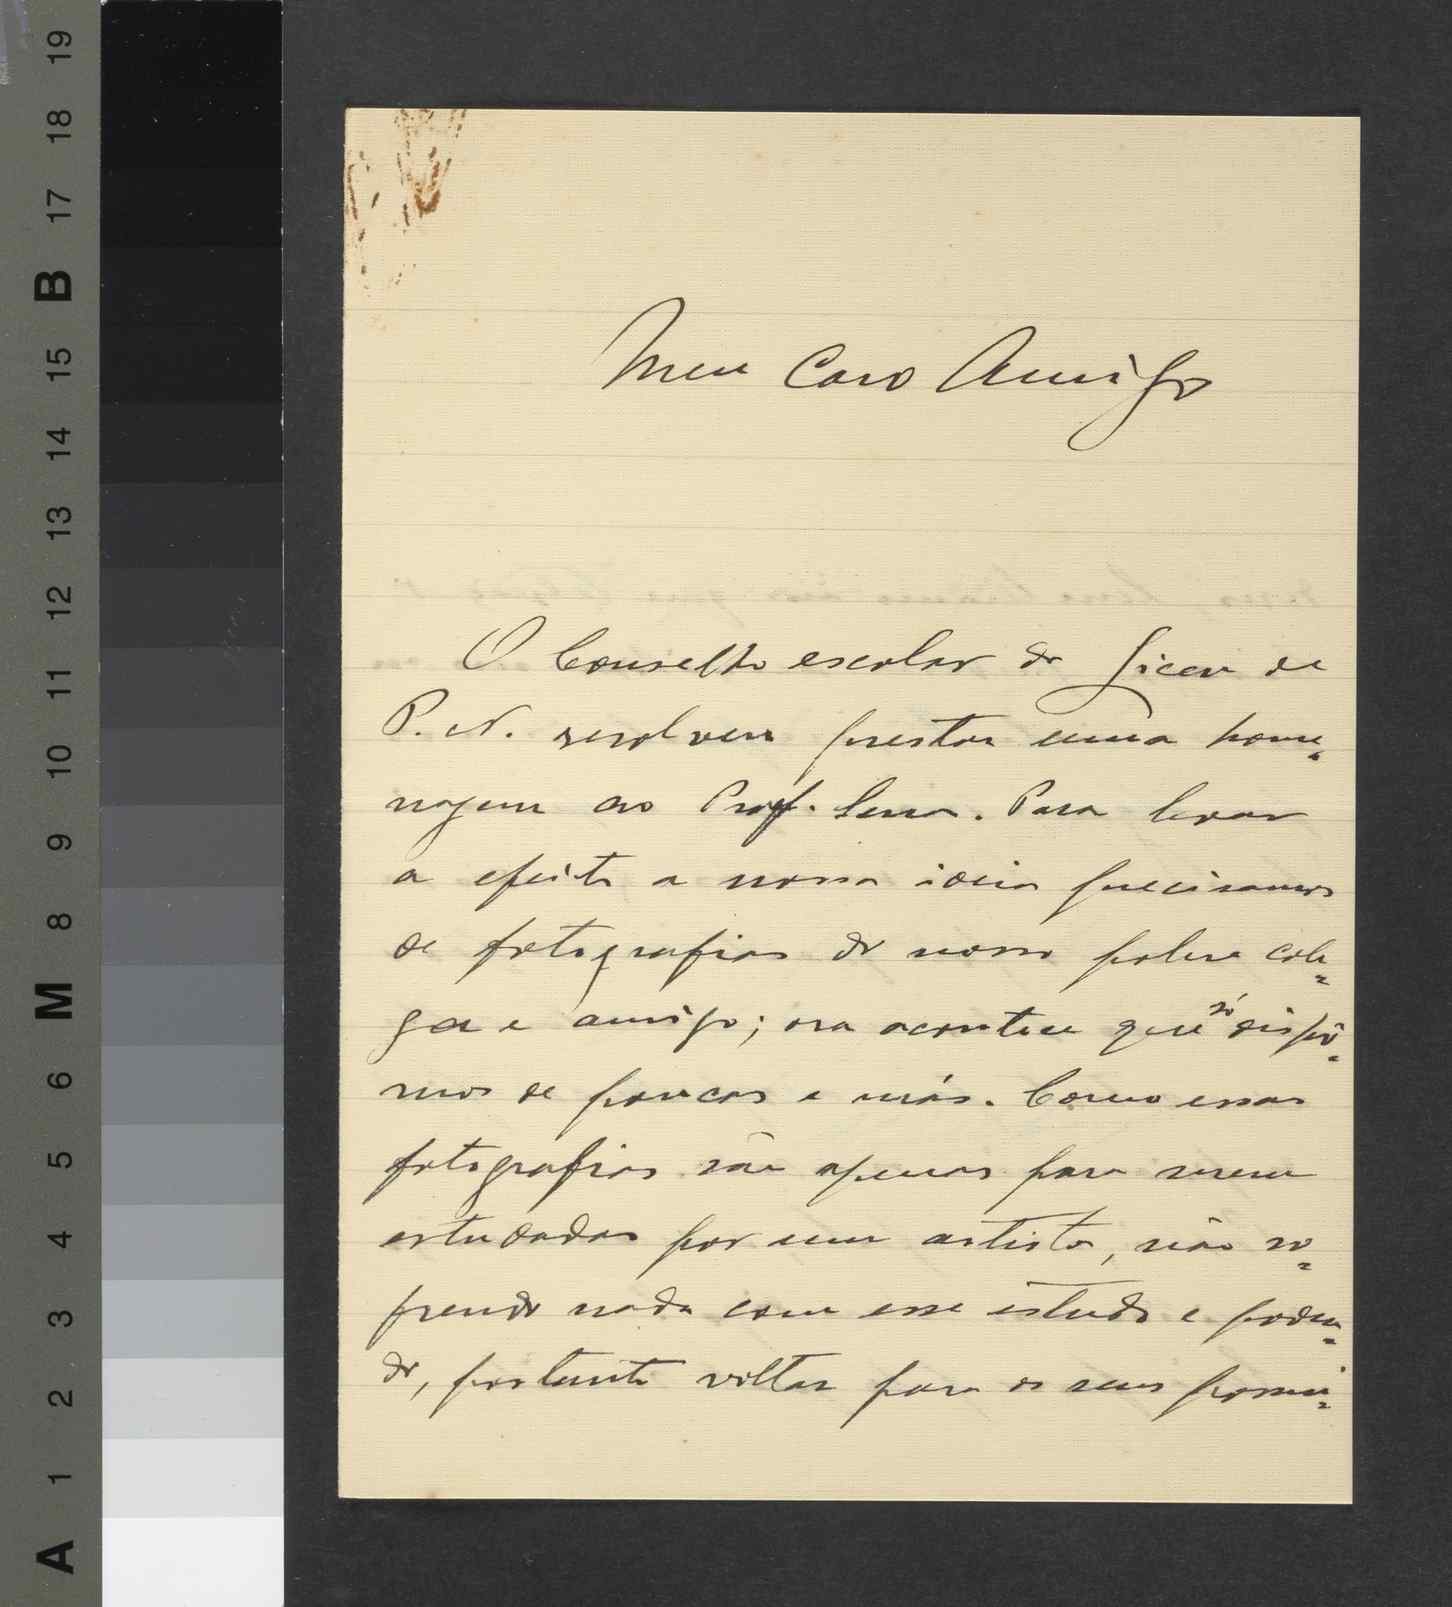 19
18
17
B
15
14
13
12
11
10
9
8
M
6
5
4
3
2
1
A
Meu Caro Amigo
O Conselho escolar do Liceu de
P. N. resolveu prestar uma home=
nagem ao Prof. Lima. Para levar
a efeito a nossa ideia precisamos
de fotografias do nosso pobre cole=
ga e amigo; ora acontece que só dispo=
mos de poucas e más. Como essas
fotografias são apenas para serem
estudadas por um artista, não so=
frendo nada com esse estudo e poden=
do, portanto voltar para os seus possui=